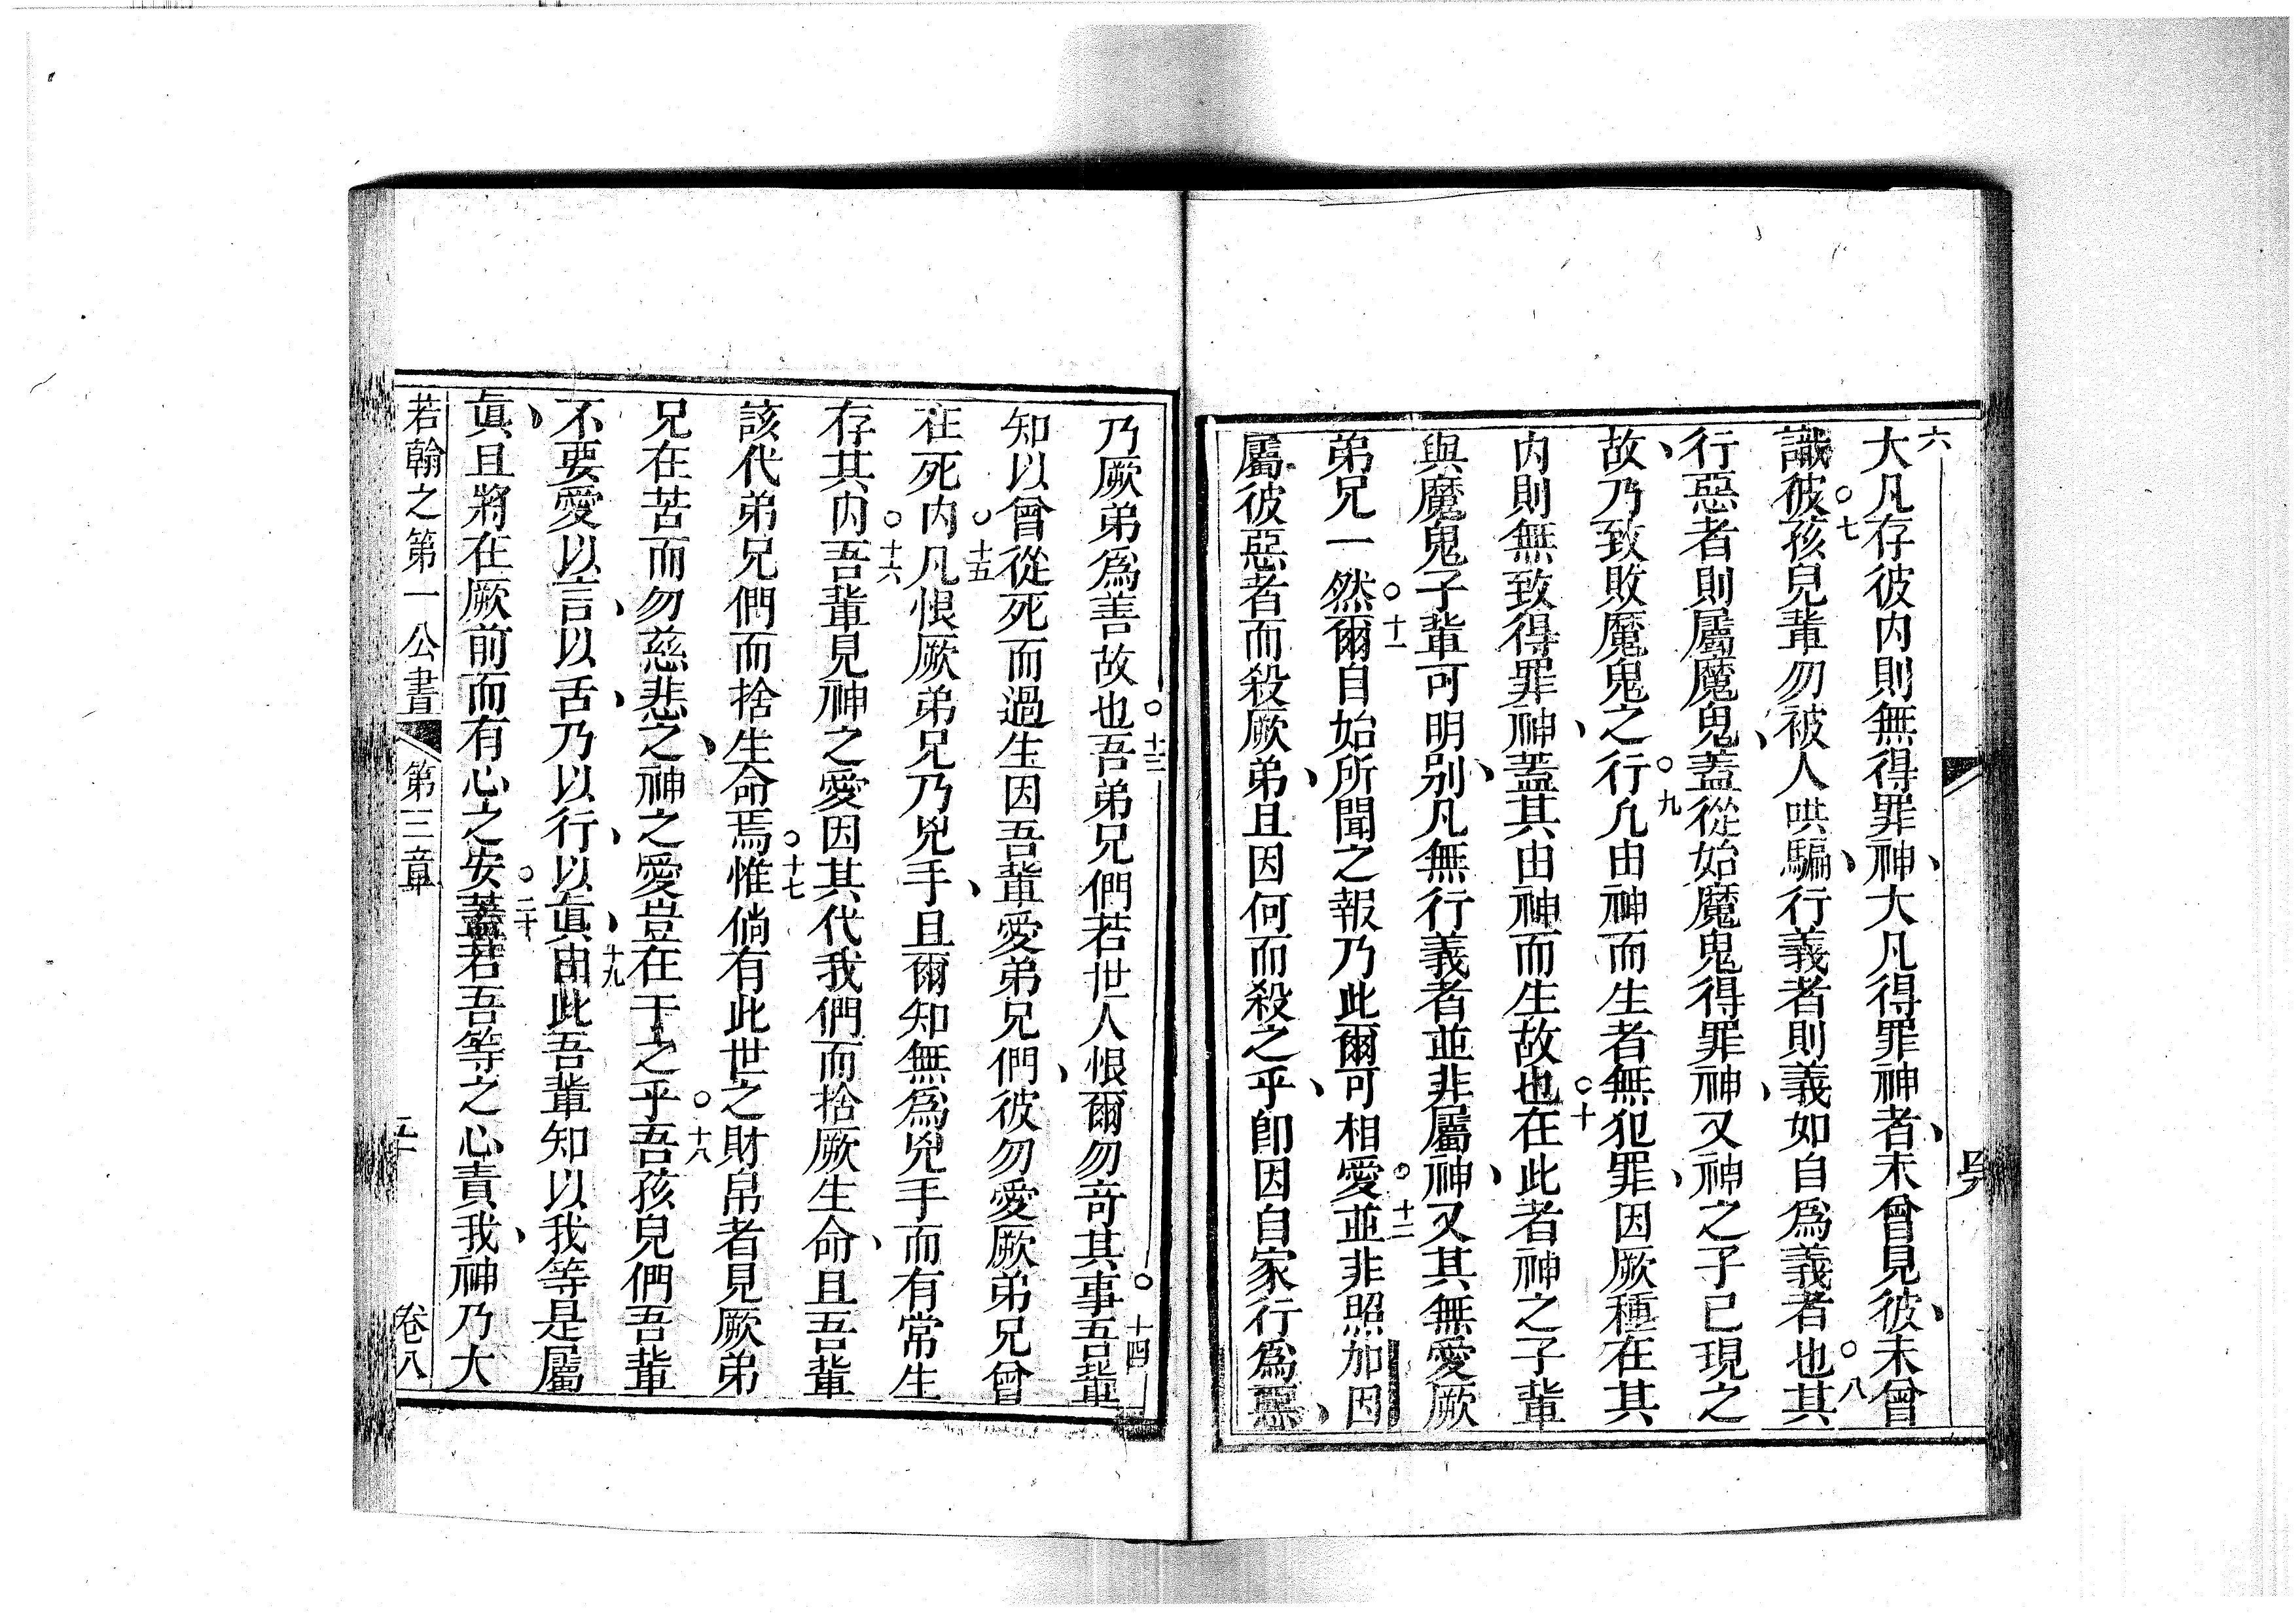 六
大凡存彼内則無得罪神、大凡得罪神者、未曾見彼、未曾
識彼○七孩兒輩勿被人哄騙、行義者則義如自爲義者也○八其
行惡者則屬魔鬼、蓋從始魔鬼得罪神、又神之子已現之
故、乃致敗魔鬼之行○九凡由神而生者無犯罪、因厥種在其
内則無致得罪神、蓋其由神而生故也○十在此者神之子輩
與魔鬼子輩可明别、凡無行義者並非屬神、又其無愛厥
弟兄一然○十一爾自始所聞之報乃此爾可相愛○十二並非照加因
屬彼惡者而殺厥弟、且因何而殺之乎、卽因自家行爲惡、
乃厥弟爲善故也○十三吾弟兄們若世人恨爾勿竒其事○十四吾輩
知以曾從死而過生因吾輩愛弟兄們、彼勿愛厥弟兄曾
在死内○十五凡恨厥弟兄乃兇手、且爾知無爲兇手而有常生
存其内○十六吾輩見神之愛因其代我們而捨厥生命、且吾輩
該代弟兄們而捨生命焉○十七惟倘有此世之財帛者見厥弟
兄在苦而勿慈悲之、神之愛豈在于之乎○十八吾孩兒們吾輩
不要愛以言、以舌、乃以行、以眞、○十九由此吾輩知以我等是屬
眞、且將在厥前而有心之安○二十蓋若吾等之心責我、神乃大
若翰之第一公書 第三章 卷八